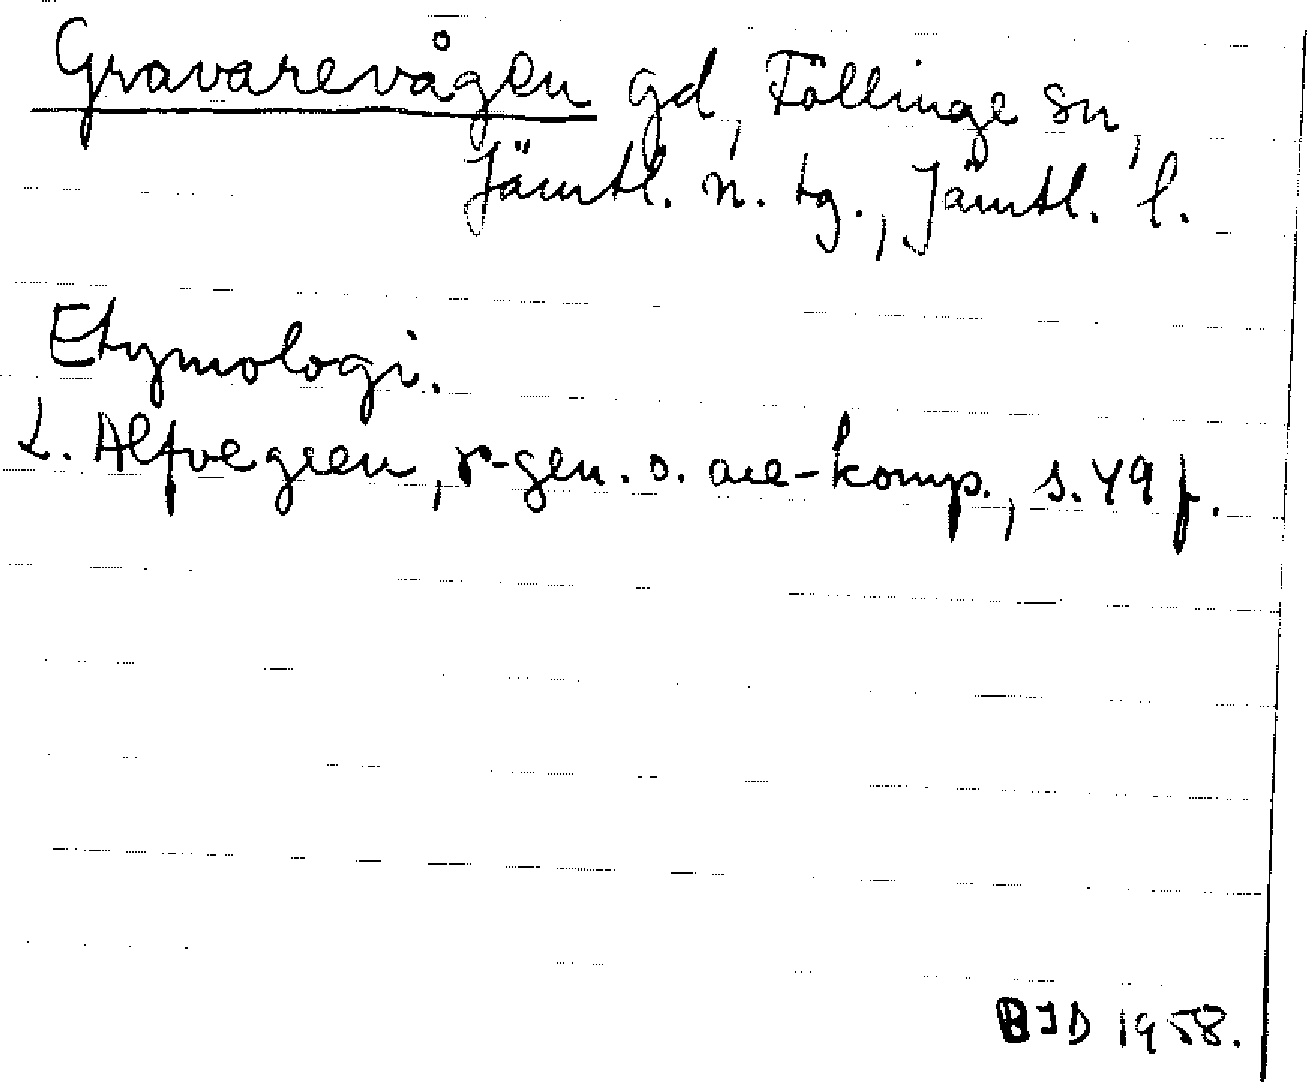 Gravarevågen gd, Föllinge sn,
Jämtl. n. tg., Jämtl. l.
Etymologi.
L. Alfvegren, r-gen. o. are-komp., s. 49 f.
BJD 1958.